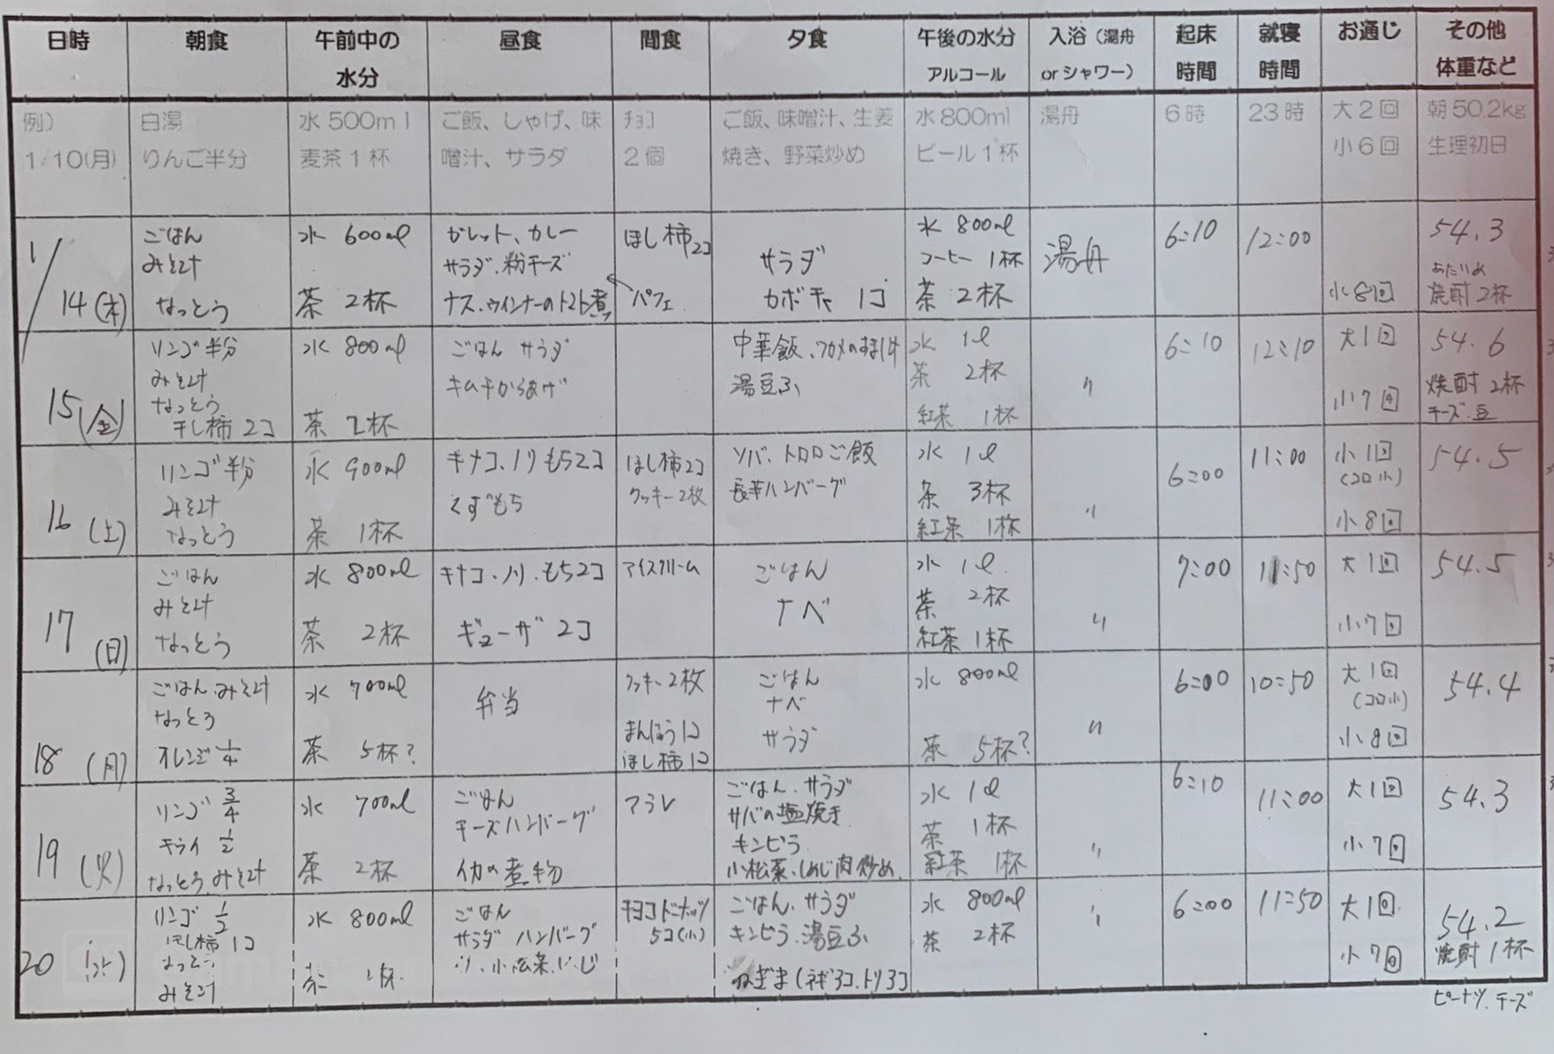 日時 朝食 午前中の水分 昼食 間食 夕食 午後の水分 アルコール 入浴（湯舟 or シャワー） 起床時間 就寝時間 お通じ その他 体重など
例）
1/10(月)
白湯
りんご半分
水 500ml
麦茶1杯
ご飯、しゃけ、味
噌汁、サラダ
チョコ
2個
ご飯、味噌汁、生姜
焼き、野菜炒め
水 800ml
ビール1杯
湯舟
6時
23時
大2回
小6回
朝50.2kg
生理初日
1/14(木)
ごはん
みそ汁
なっとう
水 600ml
茶 2杯
ガレット、カレー
サラダ、粉チーズ
ナス、ウインナーのトマト煮
ほし柿2コ
パフェ
サラダ
カボチャ 1コ
水 800ml
コーヒー 1杯
茶 2杯
湯舟
6:10
12:00
小8回
54.3
焼酎2杯
15(金)
リンゴ半分
みそ汁
なっとう
干し柿2コ
水 800ml
茶 2杯
ごはん サラダ
キムチからあげ
中華飯、ワカメの
湯豆ふ
水 1l
茶 2杯
紅茶 1杯
〃
6:10
12:10
大1回
小7回
54.6
焼酎2杯
チーズ、豆
16(土)
リンゴ半分
みそ汁
なっとう
水 900ml
茶 1杯
キナコ、ノリもち2コ
くずもち
ほし柿2コ
クッキー2枚
ソバ、トロロご飯
ハンバーグ
水 1l
茶 3杯
紅茶 1杯
〃
6:00
11:00
小1回
(コロ小)
小8回
54.5
17(日)
ごはん
みそ汁
なっとう
水 800ml
茶 2杯
キナコ、ノリ、もち2コ
ギョーザ 2コ
アイスクリーム
ごはん
ナベ
水 1l
茶 2杯
紅茶 1杯
〃
7:00
11:50
大1回
小7回
54.5
18(月)
ごはん みそ汁
なっとう
オレンジ 1/4
水 700ml
茶 5杯?
弁当
クッキー2枚
まんじゅう1コ
ほし柿1コ
ごはん
ナベ
サラダ
水 800ml
茶 5杯?
〃
6:00
10:50
大1回
(コロ小)
小8回
54.4
19(火)
リンゴ 3/4
キウイ 1/2
なっとう みそ汁
水 700ml
茶 2杯
ごはん
チーズハンバーグ
イカの煮物
アラレ
ごはん、サラダ
サバの塩焼き
キンピラ
小松菜、しめじ肉炒め
水 1l
茶 1杯
紅茶 1杯
〃
6:10
11:00
大1回
小7回
54.3
20(水)
リンゴ 1/2
ほし柿1コ
なっとう
みそ汁
水 800ml
茶
ごはん
サラダ ハンバーグ
チョコドーナッツ
5コ(小)
ごはん、サラダ
キンピラ、湯豆ふ
ねぎま(ネギ3コ、トリ3コ
水 800ml
茶 2杯
〃
6:00
11:50
大1回
小7回
54.2
焼酎1杯
ピーナツ、チーズ